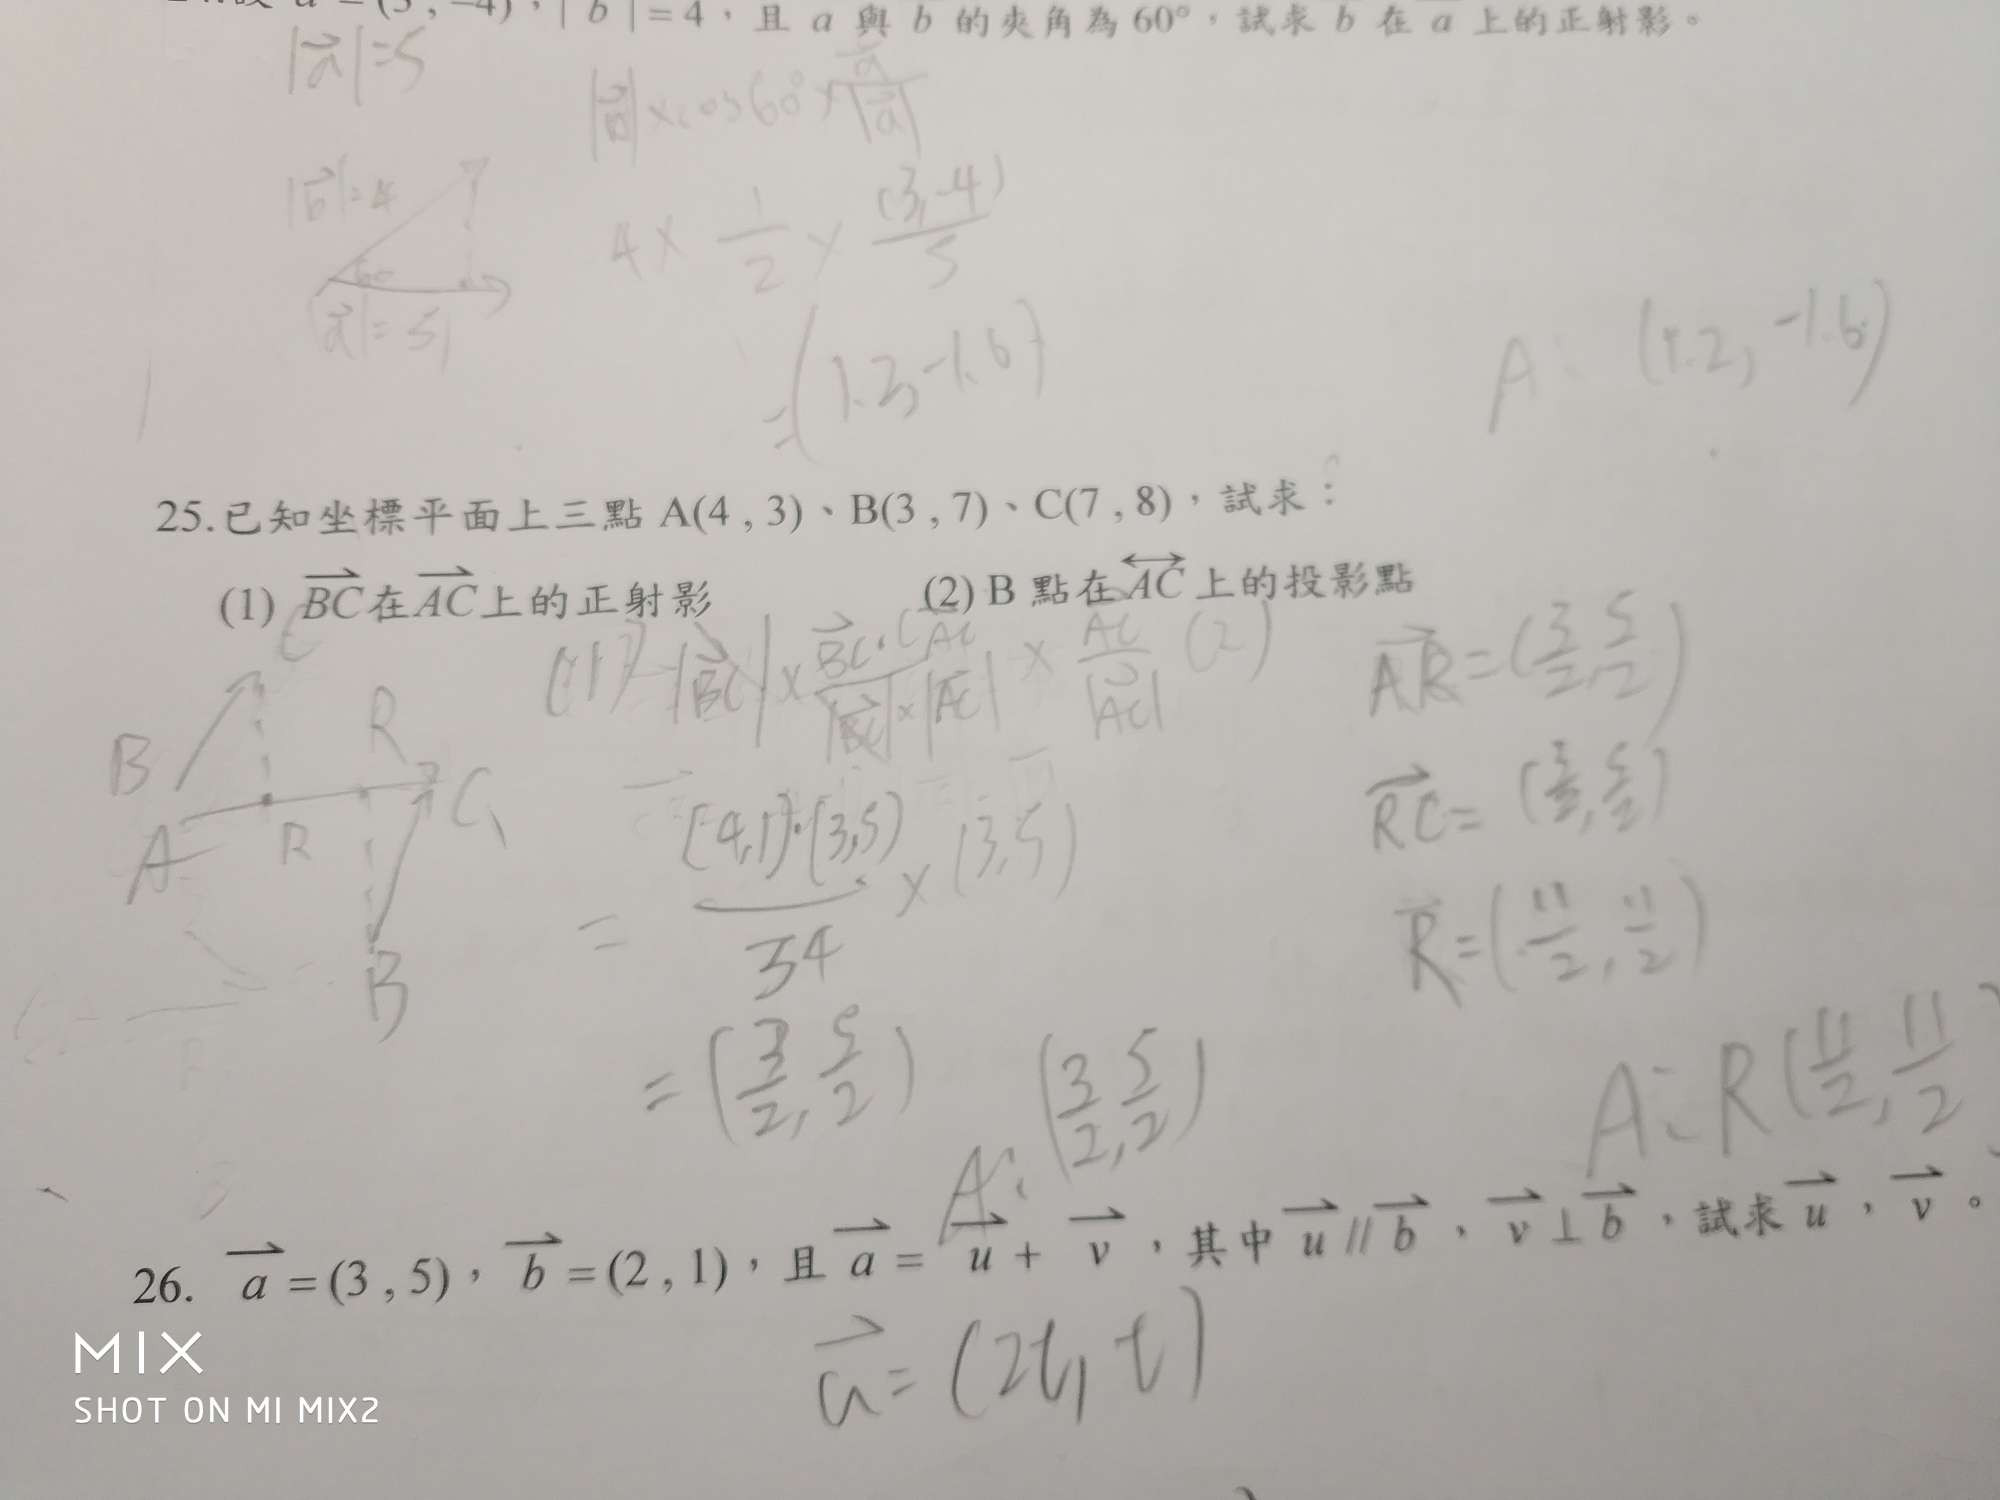 a = (3 , −4)，| b | = 4，且 a 與 b 的夾角為 60°，試求 b 在 a 上的正射影。
|a|=5
|b|×cos60°× a/|a|
|b|=4
60
|a|=5
4× 1/2 × (3,-4)/5
=(1.2,-1.6)
A: (1.2,-1.6)
25.已知坐標平面上三點 A(4 , 3)、B(3 , 7)、C(7 , 8)，試求：
(1) BC在AC上的正射影 (2) B 點在AC上的投影點
C
B
A
R
R
C
B
(1) |BC| × BC·AC/|BC|×|AC| × AC/|AC|
= (4,1)·(3,5)/34 × (3,5)
= (3/2, 5/2)
A: (3/2, 5/2)
(2)
AR=(3/2, 5/2)
RC=(3/2, 5/2)
R=(11/2, 11/2)
A: R(11/2, 11/2)
26. a = (3 , 5)，b = (2 , 1)，且 a = u + v，其中 u // b，v ⊥ b，試求 u，v。
u=(2t, t)
MIX
SHOT ON MI MIX2